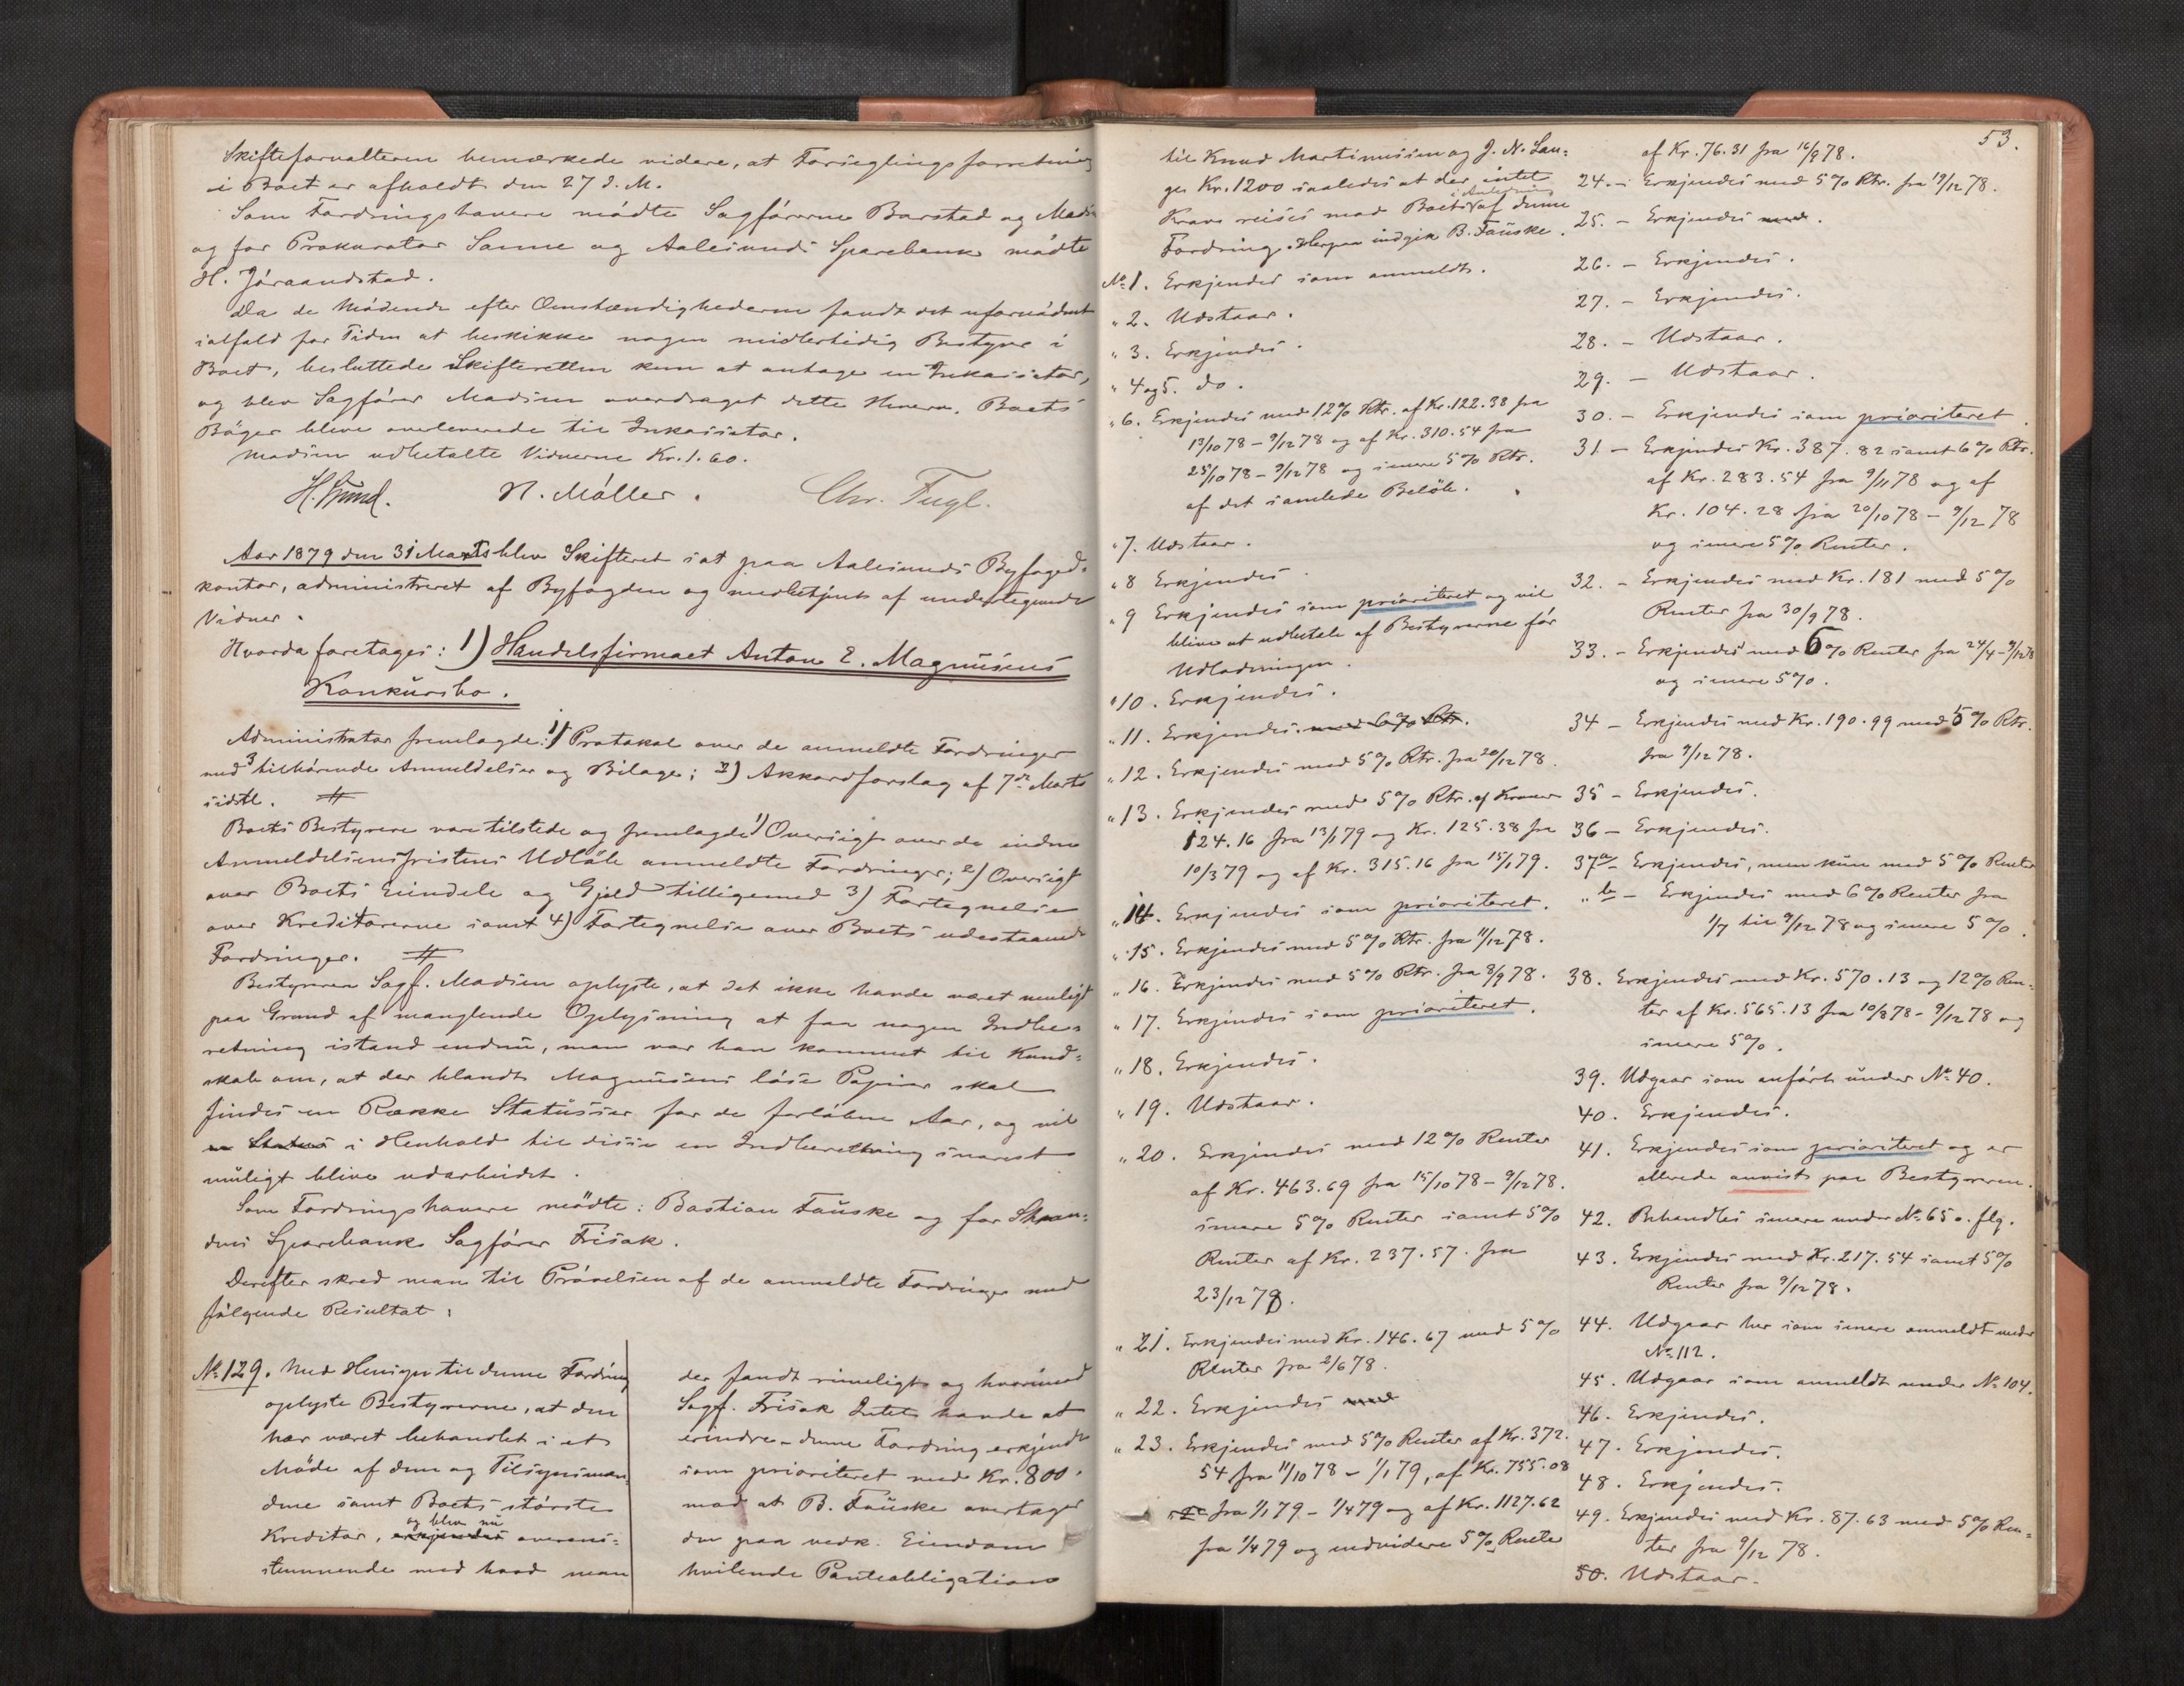 Skifteforvalteren bemærkede videre, at Forseglingsforretning
i Boet er afholdt den 27 d. M.
Som Fordringshavere mødte Sagførerne Barstad og Madsen
og for Prokurator Sanne og Aalesunds Sparebank mødte
H. Jóraandstad.
Da de Mødende efter Omstændighederne fandt det ufornødent
ialfald for Tiden at beskikke nogen midlertidig Bestyrer i
Boet, besluttede Skifteretten kun at antage en Inkassator,
og blev Sagfører Madsen overdraget dette Hverv. Boets
Bøger bleve overleverede til Inkassator.
Madsen udbetalte Vidnerne Kr. 1.60.
H. Lund. N. Møller. Chr. Fugl.
Aar 1879 den 31 Marts blev Skifteret sat paa Aalesunds Byfoged-
kontor, administreret af Byfogden og medbetjent af undertegnede
Vidner.
Hvorda foretages: 1) Handelsfirmaet Anton E. Magnusens
Konkursbo.
Administrator fremlagde: 1) Protokol over de anmeldte Fordringer
med tilhørende Anmeldelser og Bilage; 2) Akkordforslag af 7de Marts
sidstl. #
Boets Bestyrere vare tilstede og fremlagde 1) Oversigt over de inden
Anmeldelsesfristens Udløb anmeldte Fordringer; 2) Oversigt
over Boets Eiendele og Gjæld tilligemed 3) Fortegnelse
over Kreditorerne samt 4) Fortegnelse over Boets udestaaende
Fordringer. #
Bestyreren Sagf. Madsen oplyste, at det ikke havde været muligt
paa Grund af manglende Oplysning at faa nogen Indbe-
retning istand endnu, men var han kommet til Kund-
skab om, at der blandt Magnusens løse Papirer skal
findes en Række Statusser for de forløbne Aar, og vil
en Status i Henhold til disse en Indberetning snarest
muligt blive udarbeidet.
Som Fordringshavere mødte: Bastian Fauske og for Skaan-
dens Sparebank Sagfører Frisak.
Derefter skred man til Prøvelsen af de anmeldte Fordringer med
følgende Resultat:
No 129. Med Hensyn til denne Fordring
oplyste Bestyrerne, at den
har været behandlet i et
Møde af dem og Tilsynsmæn-
dene samt Boets største
og blev nu
Kreditor, erkjendes overens-
stemmende med hvad man
der fandt rimeligt og hvorimod
Sagf. Frisak Intet havde at
erindre – denne Fordring erkjendt
som prioriteret med Kr. 800.
mod at B. Fauske overtager
den paa vedk. Eiendom
hvilende Panteobligation
53.
til Knud Martinussen og J. N. Lan-
ge Kr. 1200 saaledes at der intet
i Anledning
Krav reises mod Boet af denne
Fordring. Herpaa indgik B. Fauske.
No 1. Erkjendes som anmeldt.
" 2. Udstaar.
" 3. Erkjendes.
" 4 og 5. do.
" 6. Erkjendes med 12% Rtr. af Kr. 122.38 fra
13/10 78 – 9/12 78 og af Kr. 310.54 fra
25/10 78 – 9/12 78 og senere 5% Rtr.
af det samlede Beløb.
" 7. Udstaar.
" 8 Erkjendes.
" 9 Erkjendes som prioriteret og vil
blive at udbetale af Bestyrerne før
Udlodningen.
" 10. Erkjendes.
" 11. Erkjendes med 6% Rtr.
" 12. Erkjendes med 5% Rtr. fra 20/12 78.
" 13. Erkjendes med 5% Rtr. af Kroner
124.16 fra 13/1 79 og Kr. 125.38 fra
10/3 79 og af Kr. 315.16 fra 15/1 79.
" 14. Erkjendes som prioriteret.
" 15. Erkjendes med 5% Rtr. fra 11/12 78.
" 16. Erkjendes med 5% Rtr. fra 8/9 78.
" 17. Erkjendes som prioriteret.
" 18. Erkjendes.
" 19. Udstaar.
" 20. Erkjendes med 12% Renter
af Kr. 463.69 fra 15/10 78 – 9/12 78.
senere 5% Renter samt 5%
Renter af Kr. 237.57. fra
23/12 78.
" 21. Erkjendes med Kr. 146.67 med 5%
Renter fra 2/6 78.
" 22. Erkjendes med
" 23. Erkjendes med 5% Renter af Kr. 372.
54 fra 11/10 78 – 1/1 79, af Kr. 755.08
fra 1/1 79 – 1/4 79 og af Kr. 1127.62
fra 1/4 79 og endvidere 5% Renter
af Kr. 76.31 fra 16/9 78.
24. – Erkjendes med 5% Rtr. fra 19/12 78.
25. – Erkjendes med.
26. – Erkjendes.
27. – Erkjendes.
28. – Udstaar.
29. – Udstaar.
30. – Erkjendes som prioriteret.
31 – Erkjendes Kr. 387.82 samt 6% Rtr.
af Kr. 283.54 fra 9/11 78 og af
Kr. 104.28 fra 20/10 78 – 9/12 78
og senere 5% Renter.
32. – Erkjendes med Kr. 181 med 5%
Renter fra 30/9 78.
33. – Erkjendes med 6% Renter fra 24/4 – 9/12 78
og senere 5%.
34 – Erkjendes med Kr. 190.99 med 5% Rtr.
fra 9/12 78.
35 – Erkjendes.
36 – Erkjendes.
37a – Erkjendes, men kun med 5% Renter
" b – Erkjendes med 6% Renter fra
1/7 til 9/12 78 og senere 5%.
38. Erkjendes med Kr. 570.13 og 12% Ren-
ter af Kr. 565.13 fra 10/8 78 – 9/12 78 og
senere 5%.
39. Udgaar som anført under No 40.
40. Erkjendes.
41. Erkjendes som prioriteret og er
allerede anvist paa Bestyreren.
42. Behandles senere under No 65 o. flg.
43. Erkjendes med Kr. 217.54 samt 5%
Renter fra 9/12 78.
44. Udgaar her som senere anmeldt under
No 112.
45. Udgaar som anmeldt under No 104.
46. Erkjendes.
47. Erkjendes.
48. Erkjendes.
49. Erkjendes med Kr. 87.63 med 5% Ren-
ter fra 9/12 78.
50. Udstaar.